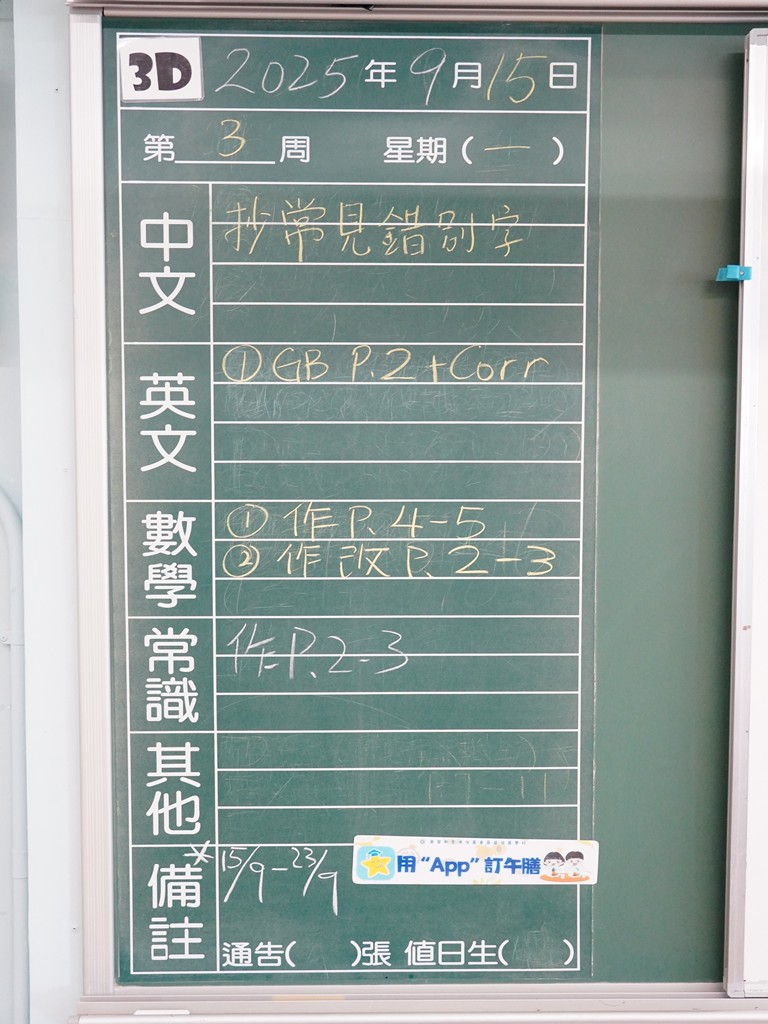 3D 2025年9月15日
第 3 周 星期(一)
中文
抄常見錯別字
英文
① GB P.2 + Corr
數學
① 作 P. 4-5
② 作改 P. 2-3
常識
作 P. 2-3
其他
備註
* 15/9 - 23/9
用 “App” 訂午膳
通告( )張 值日生( )